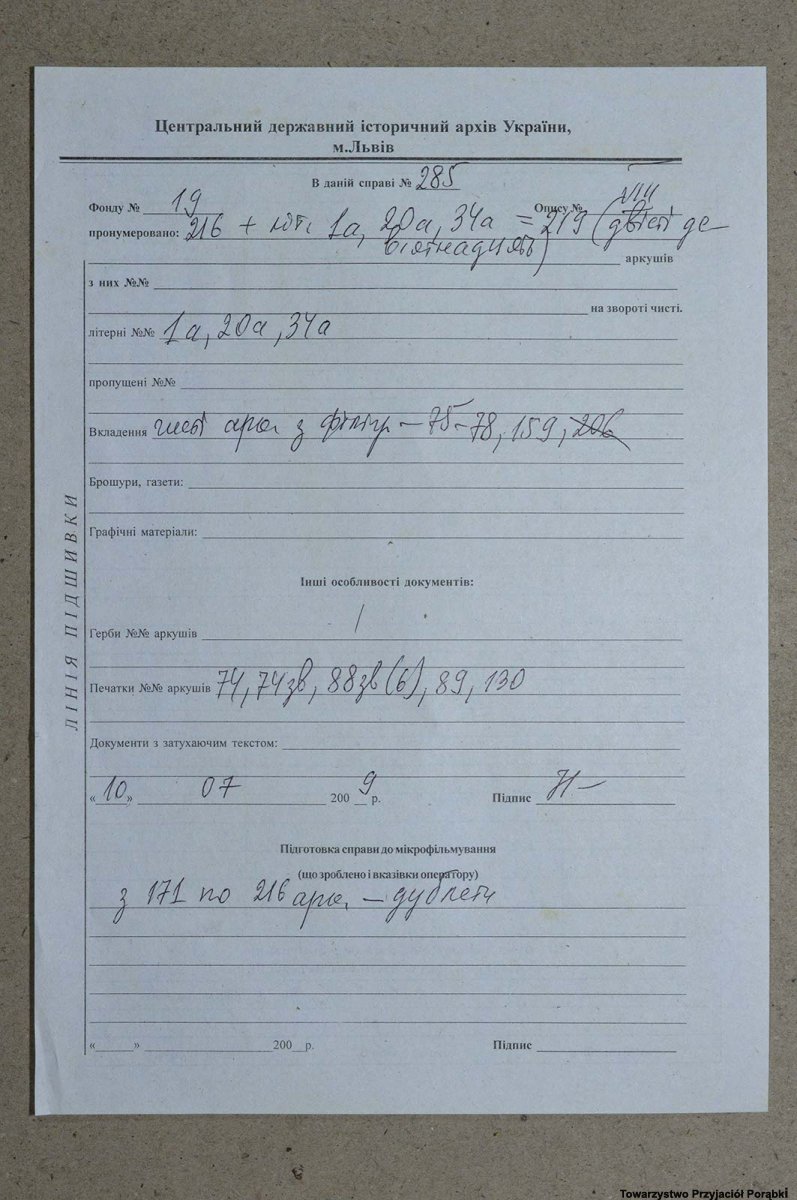 Центральний державний історичний архів України,
м.Львів
В даній справі № 285
Фонду № 19 Опису №
пронумеровано: 216 + літ. 1а, 20а, 34а = 219 (двісті де
вʼятнадцять)
аркушів
з них №№
на звороті чисті.
літерні №№ 1а, 20а, 34а
пропущені №№
Вкладення арк. з філігр – 75-78, 159, 206
Брошури, газети:
Графічні матеріали:
Інші особливості документів:
Герби №№ аркушів /
Печатки №№ аркушів 74, 74зв, 88зв(6), 89, 130
Документи з затухаючим текстом:
«10» 07 2009 р. Підпис
Підготовка справи до мікрофільмування
(що зроблено і вказівки оператору)
з 171 по 216 арк. – дублети
«» 200 р. Підпис
ЛІНІЯ ПІДШИВКИ
Towarzystwo Przyjaciół Porąbki